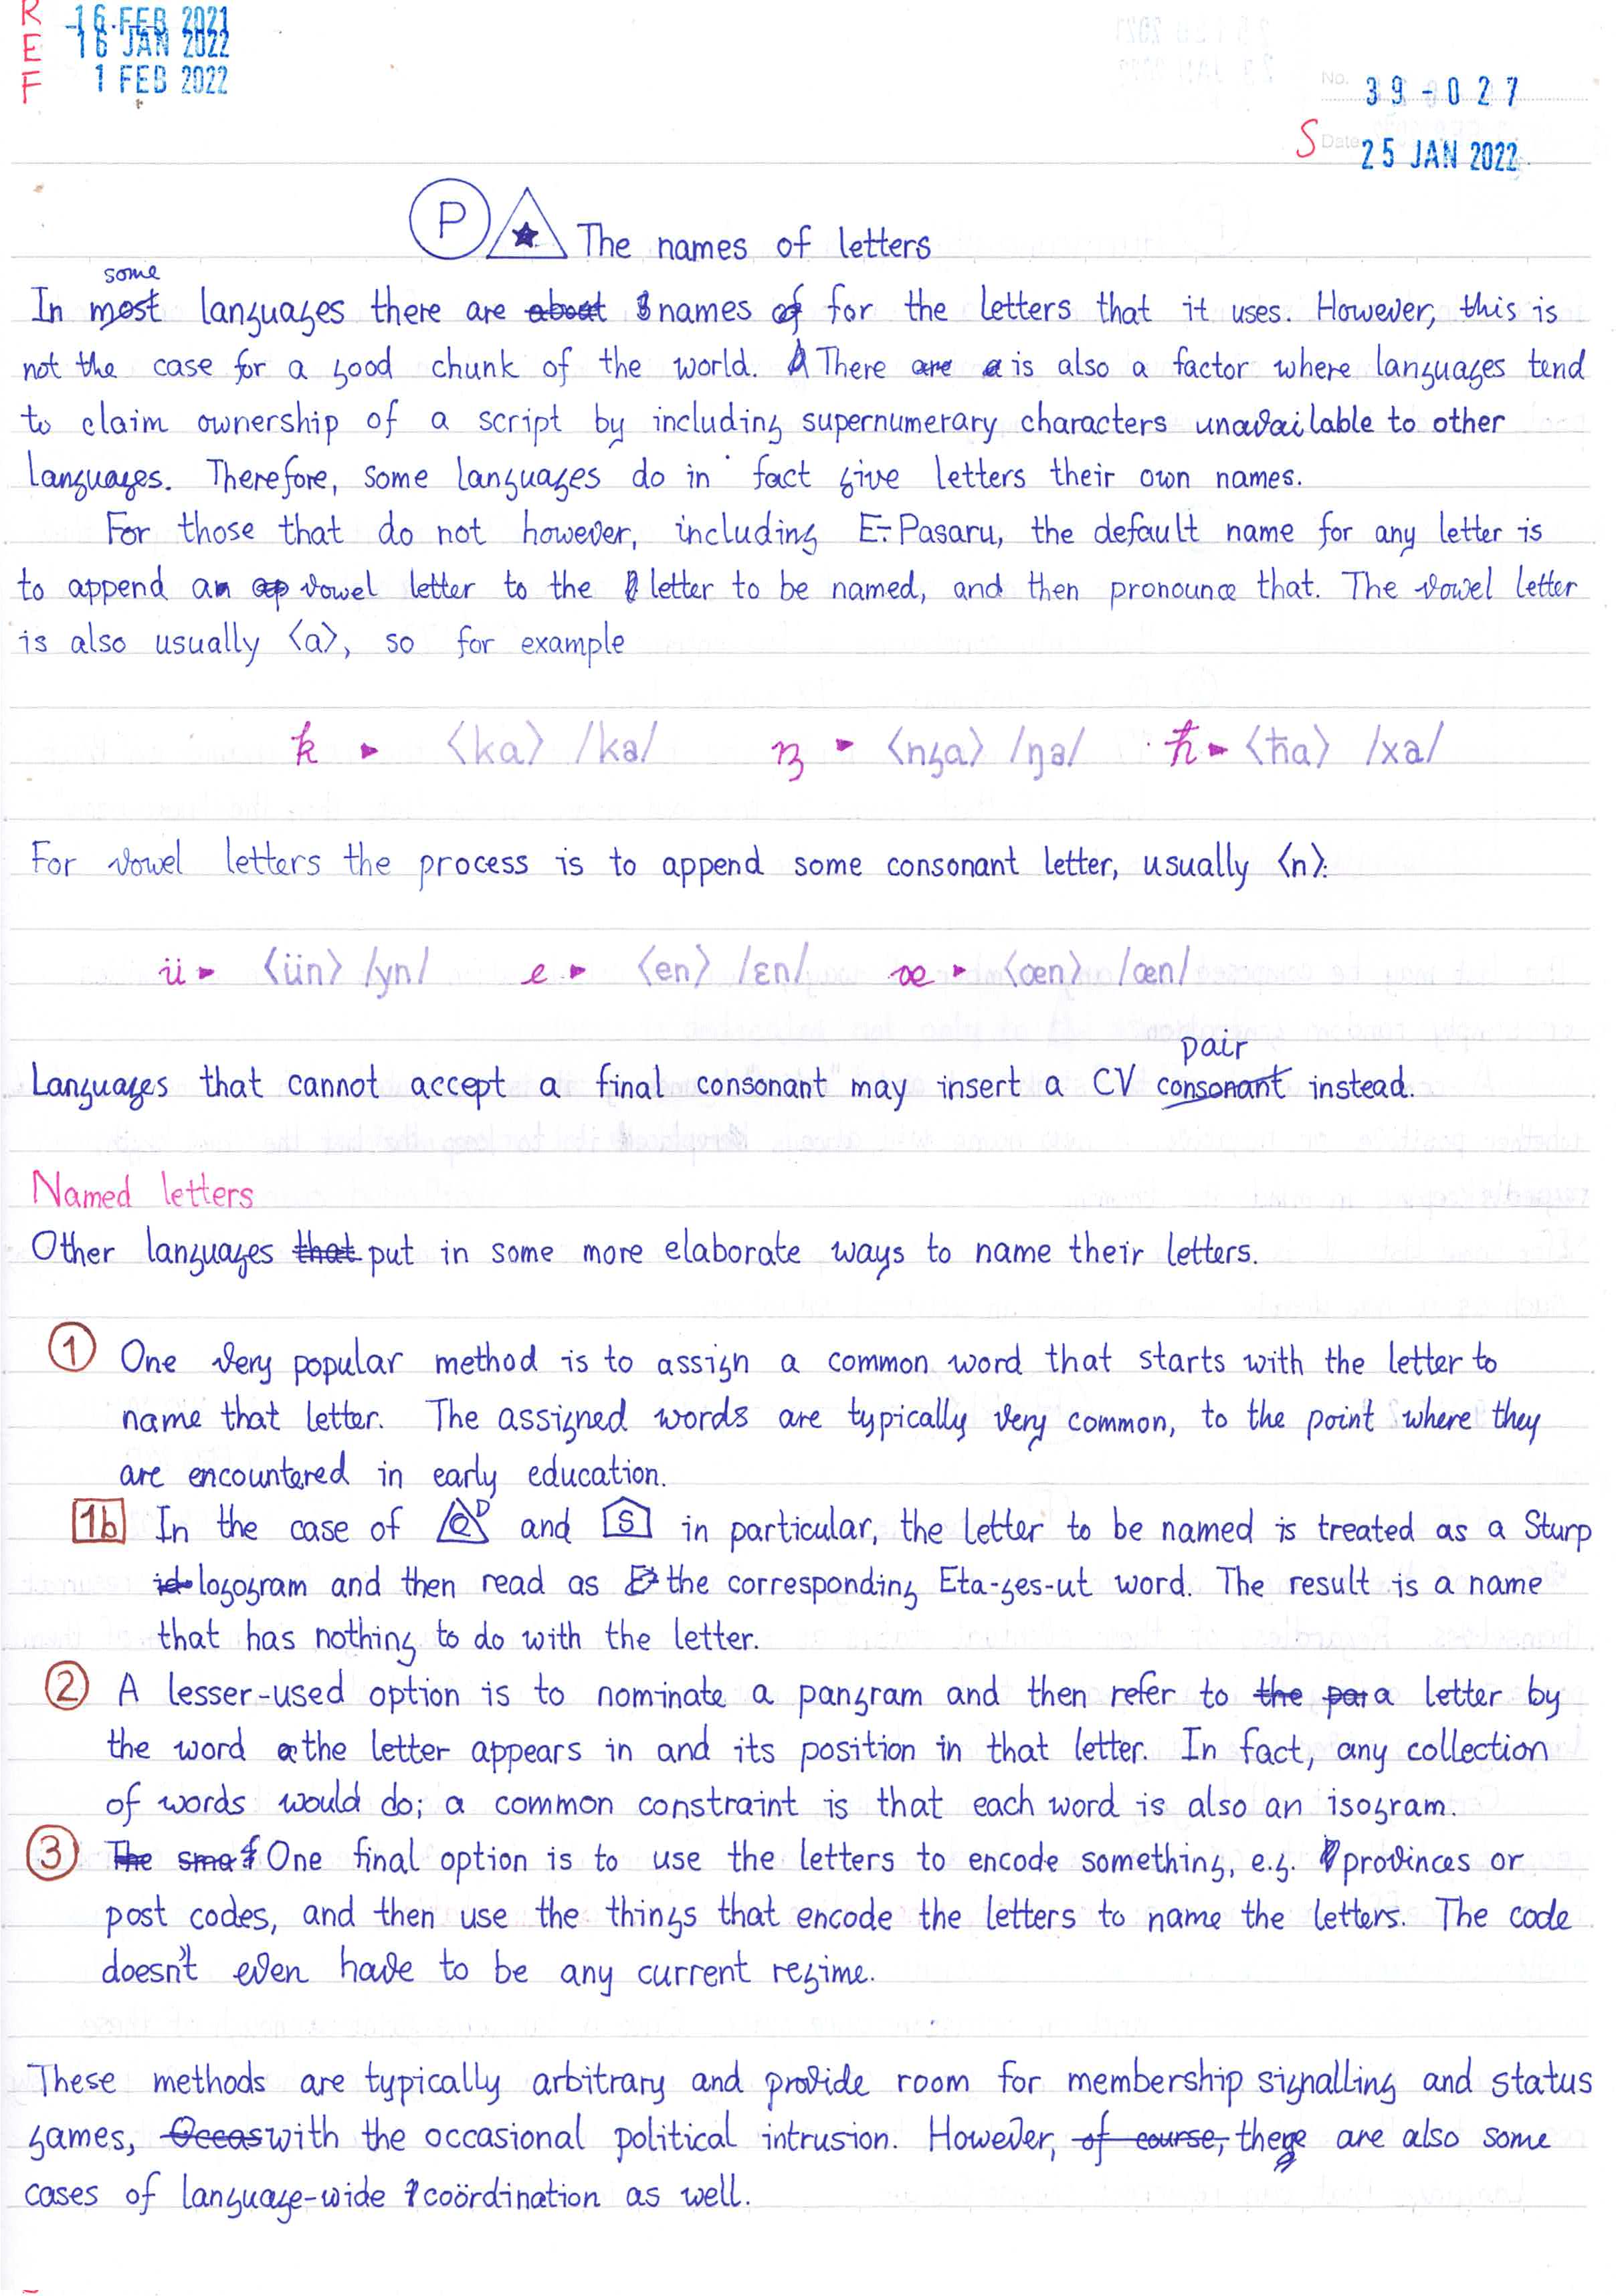 R
E
F
16 FEB 2021
16 JAN 2022
1 FEB 2022
No. 39-027
S Date 25 JAN 2022
P The names of letters
some
In most languages there are about names of for the letters that it uses. However, this is
not the case for a good chunk of the world. There are a is also a factor where languages tend
to claim ownership of a script by including supernumerary characters unavailable to other
languages. Therefore, some languages do in fact give letters their own names.
For those that do not however, including E-Pasaru, the default name for any letter is
to append an ap vowel letter to the letter to be named, and then pronounce that. The vowel letter
is also usually ⟨a⟩, so for example
k ► ⟨ka⟩ /kə/ ŋ ► ⟨nga⟩ /ŋə/ ħ ► ⟨ħa⟩ /xə/
For vowel letters the process is to append some consonant letter, usually ⟨n⟩:
ü ► ⟨ün⟩ /yn/ e ► ⟨en⟩ /ɛn/ œ ► ⟨œn⟩ /œn/
pair
Languages that cannot accept a final consonant may insert a CV consonant instead.
Named letters
Other languages that put in some more elaborate ways to name their letters.
1 One very popular method is to assign a common word that starts with the letter to
name that letter. The assigned words are typically very common, to the point where they
are encountered in early education.
1b In the case of and S in particular, the letter to be named is treated as a Sturp
id logogram and then read as the corresponding Eta-ges-ut word. The result is a name
that has nothing to do with the letter.
2 A lesser-used option is to nominate a pangram and then refer to the par a letter by
the word the letter appears in and its position in that letter. In fact, any collection
of words would do; a common constraint is that each word is also an isogram.
3 The sma f One final option is to use the letters to encode something, e.g. provinces or
post codes, and then use the things that encode the letters to name the letters. The code
doesn't even have to be any current regime.
These methods are typically arbitrary and provide room for membership signalling and status
games, Occas with the occasional political intrusion. However, of course, there are also some
cases of language-wide coördination as well.